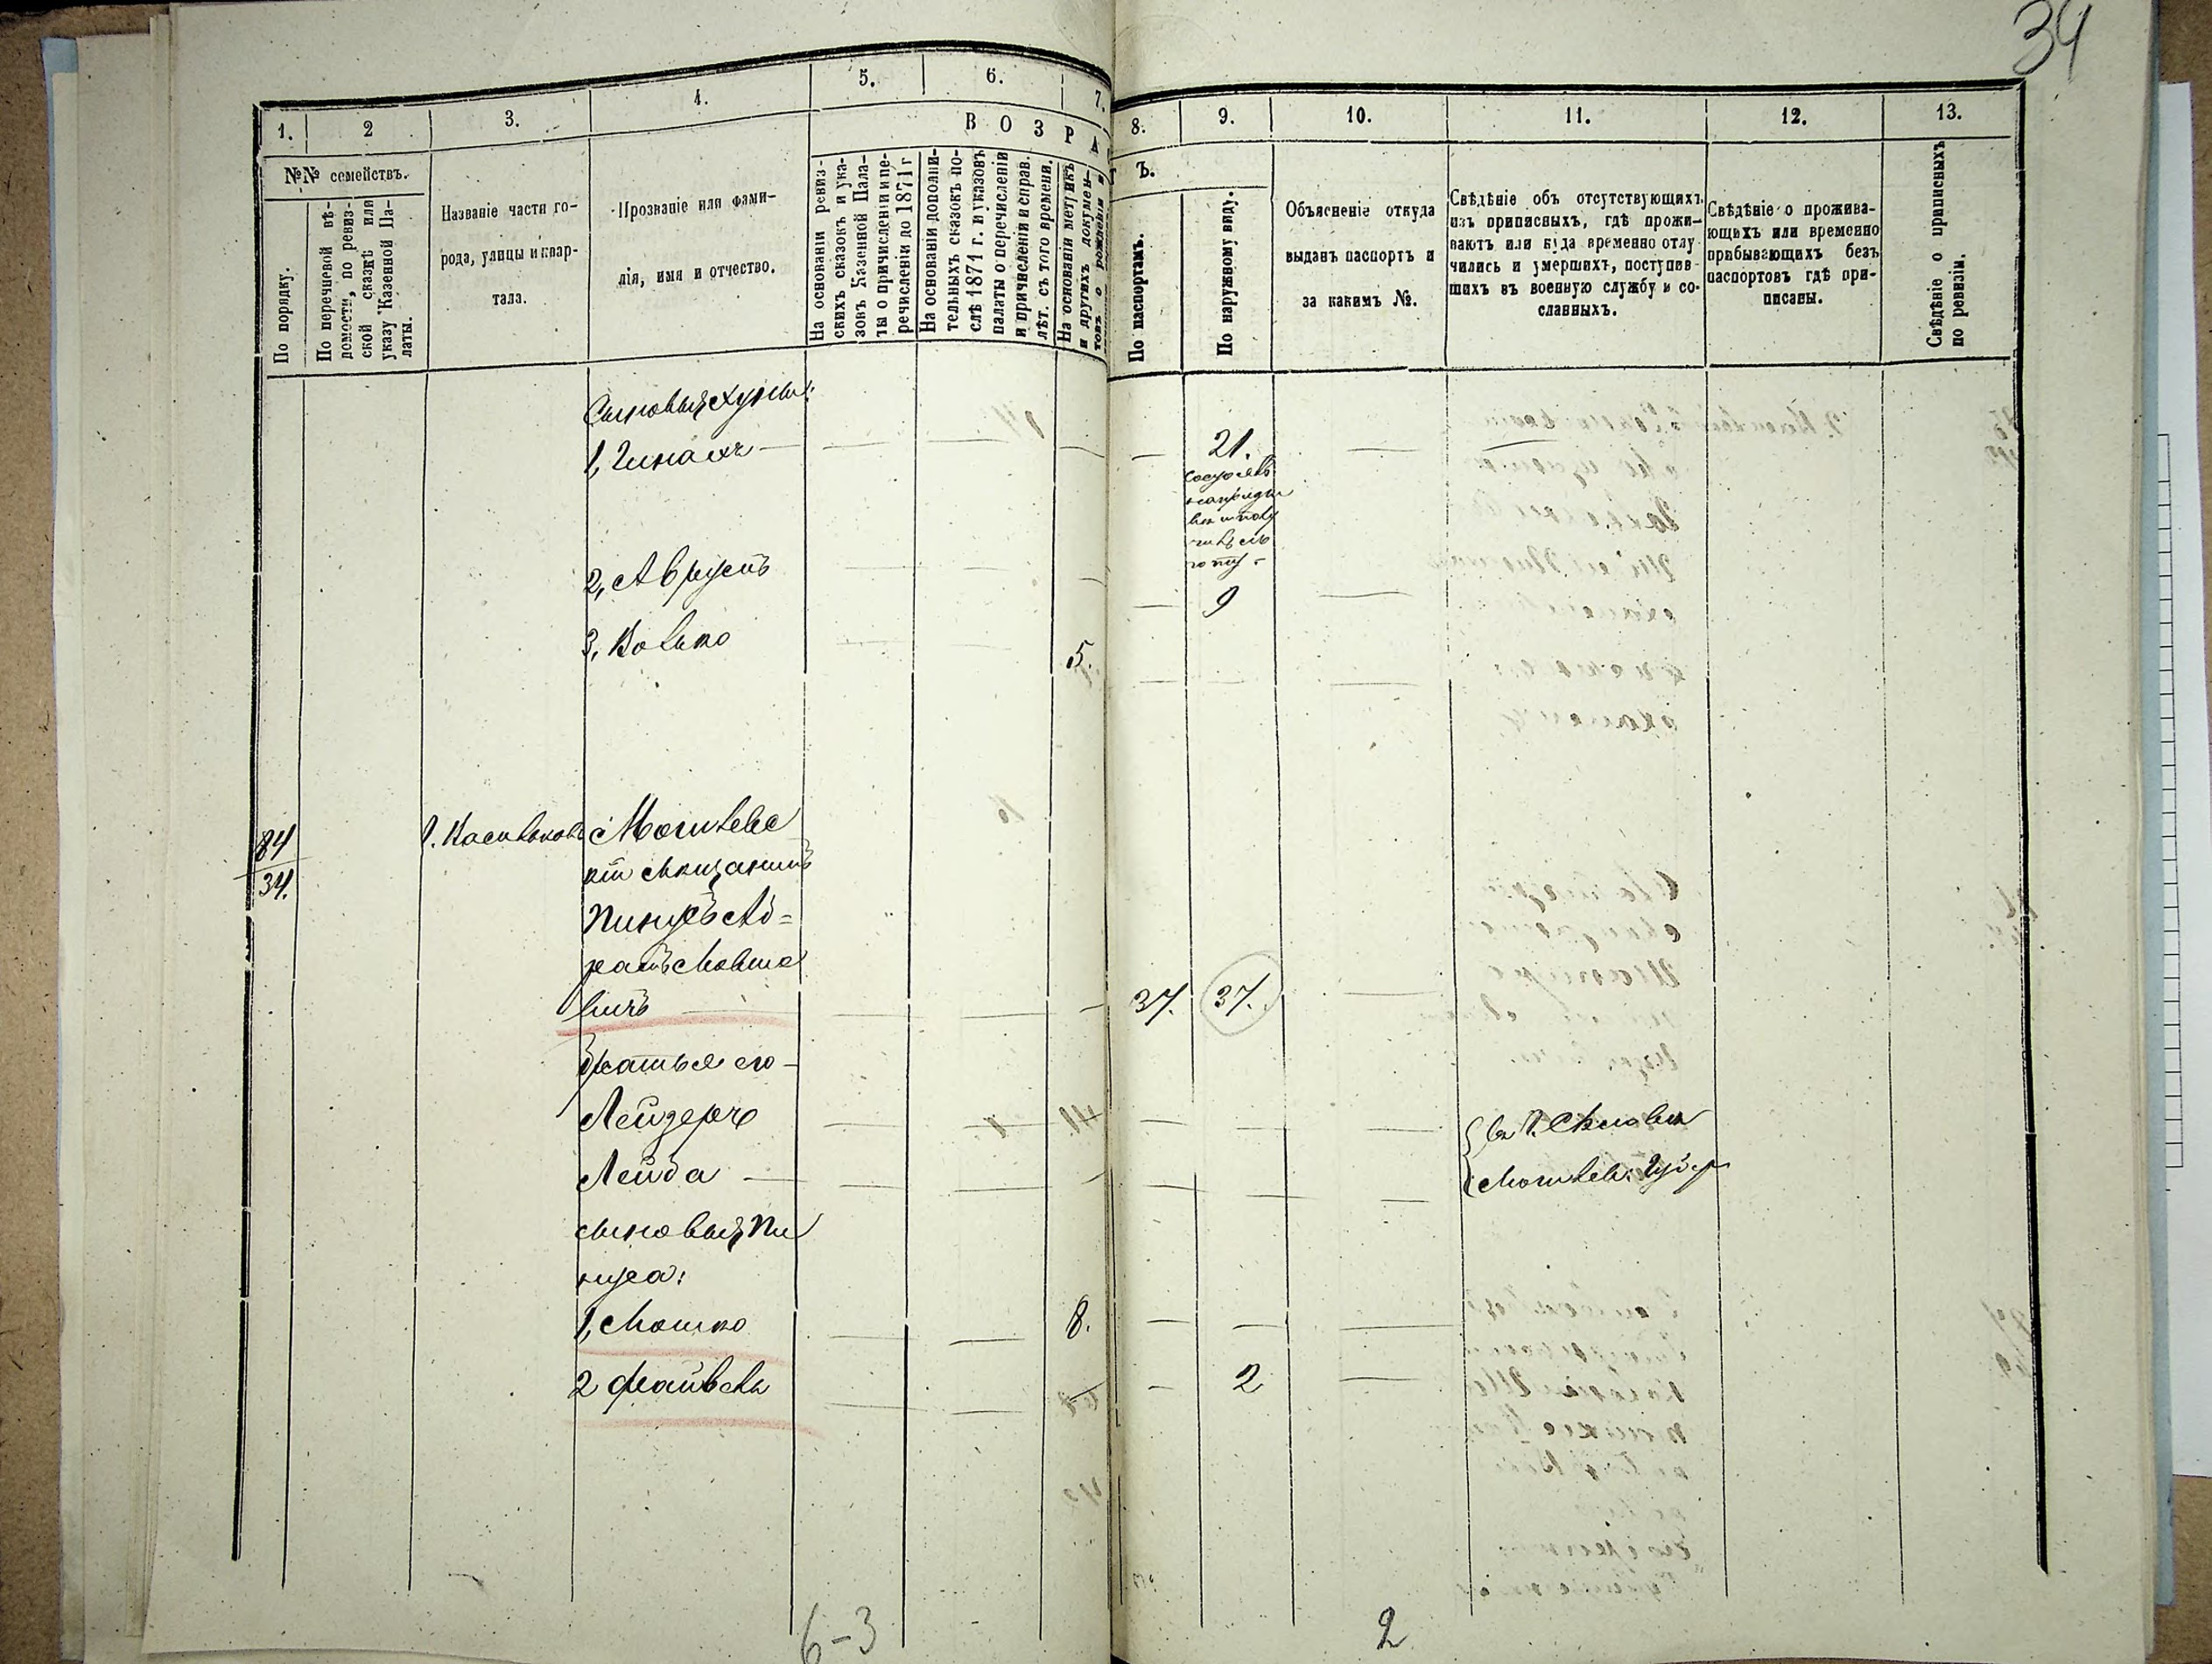 34
1.
2
3.
4.
5.
6.
7.
8.
9.
10.
11.
12.
13.
ВОЗРА
Ъ.
№№ семействъ.
По порядку.
По перечневой вѣ-
домости, по ревиз-
ской сказкѣ или
указу Казенной Па-
латы.
Названіе части го-
рода, улицы и квар-
тала.
Прозваніе или фами-
лія, имя и отчество.
На основаніи ревиз-
скихъ сказокъ и ука-
зовъ Казенной Пала-
ты о причисленіи и пе-
речисленіи до 1871 г
На основаніи дополни-
тельныхъ сказокъ по-
слѣ 1871 г. и указовъ
палаты о перечисленіи
и причисленіи и справ.
лѣт. съ того времени.
На основаніи метрикъ
и другихъ докумен-
товъ о рожденіи и
По паспортамъ.
По наружному виду.
Объясненіе откуда
выданъ паспортъ и
за какимъ №.
Свѣдѣніе объ отсутствующихъ
изъ приписныхъ, гдѣ прожи-
ваютъ или куда временно отлу
чились и умершихъ, поступив-
шихъ въ военную службу и со-
сланныхъ.
Свѣдѣніе о прожива-
ющихъ или временно
прибывающихъ безъ
паспортовъ гдѣ при-
писаны.
Свѣдѣніе о приписныхъ
по ревизіи.
Сыновья
1,
21.
2, Аврумъ
9
3, Волько
5.
84
34.
Могилевс
кій Мѣщанинъ
Пинхусъ Аб=
рамъ Мовшо
вичъ
37.
37.
Братья его
Лейзеръ
Лейба
Могилев. Губер
сыновья Пи
нхуса:
1, Мошко
8.
2 Файвель
2
6-3
2